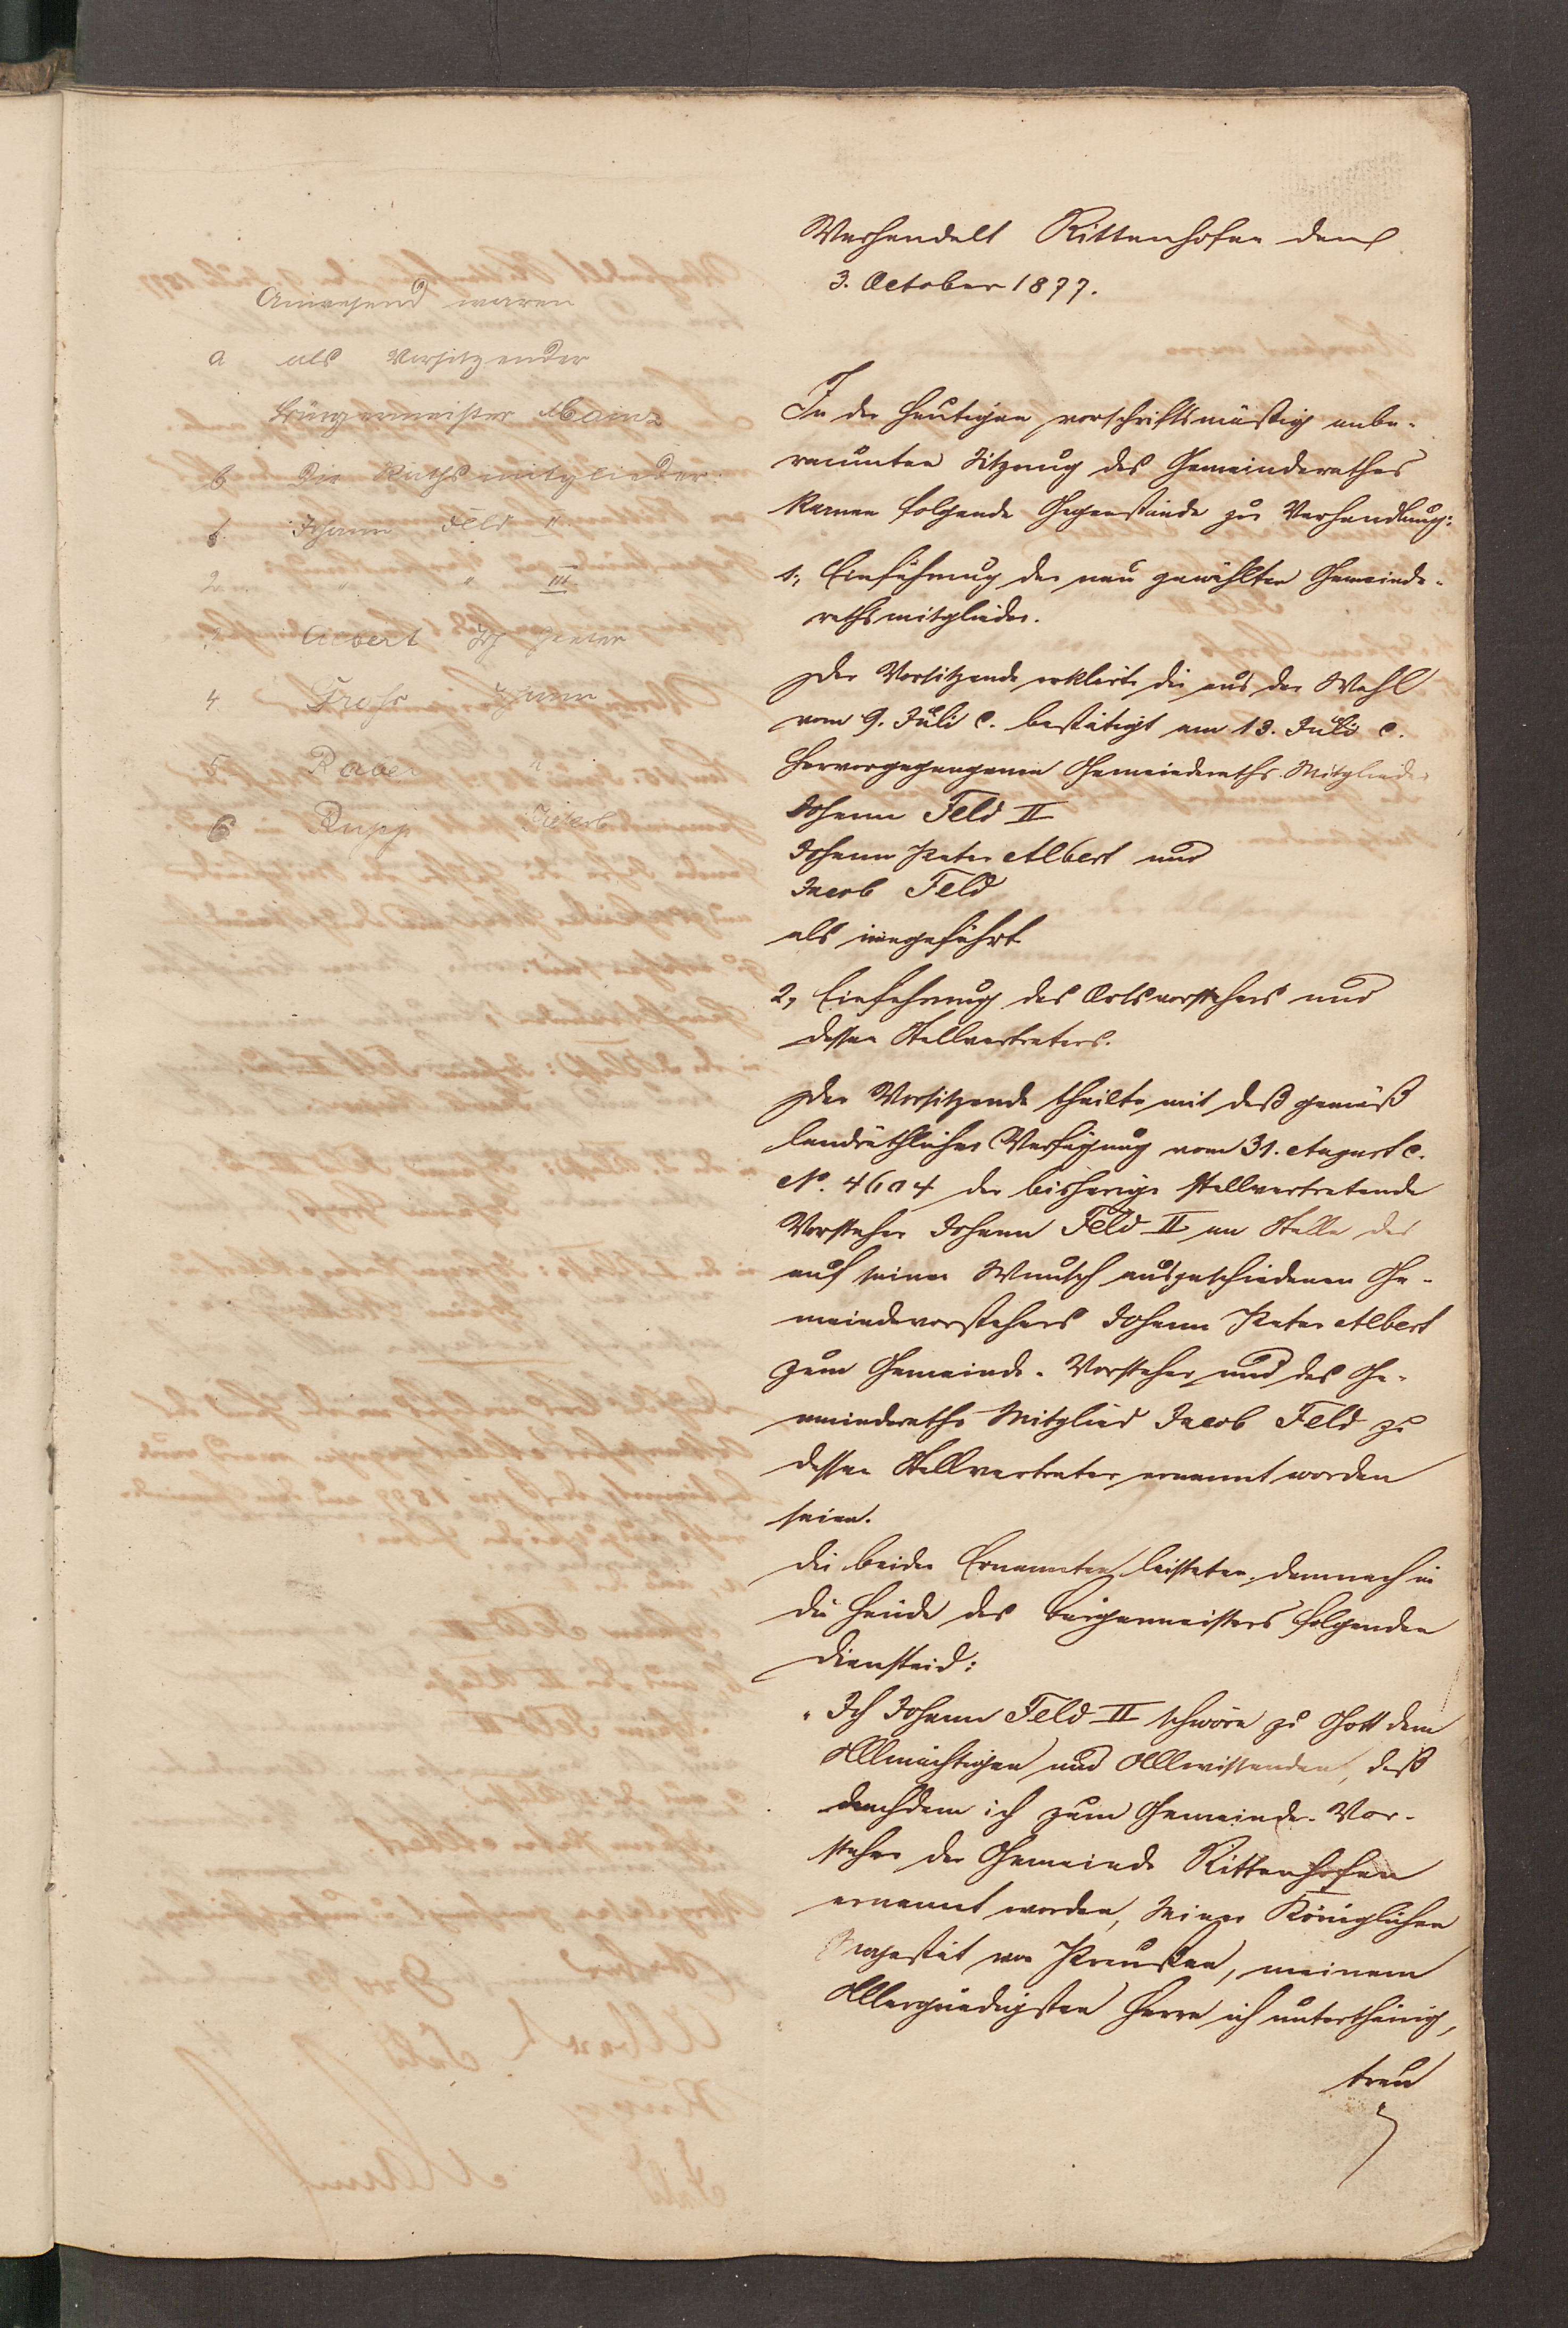 Verhandelt Rittenhofen den
3. October 1877.
Anwesend waren
a als Vorsitzender
Bürgermeister Mainz
b Die Rathsmitglieder:
1. Johann Feld II
2. " " III
3 Albert Joh Peter
4. Groß Johann
5. Raber "
6 Rupp Jakob
In der heutigen vorschriftsmäßig anbe-
raumten Sitzung des Gemeinderathes
kamen folgende Gegenstände zur Verhandlung:
1., Einführung der neu gewählten Gemeinde-
rathsmitglieder.
Der Vorsitzende erklärte die aus der Wahl
vom 9. Juli c. bestätigt am 13. Juli c.
hervorgegangenen Gemeinderaths-Mitglieder
Johann Feld II
Johann Peter Albert und
Jacob Feld
als eingeführt
2, Einführung des Ortsvorstehers und
dessen Stellvertreters.
Der Vorsitzende theilte mit daß gemäß
landräthlicher Verfügung vom 31. August c.
No. 4604 der bisherige stellvertretende
Vorsteher Johann Feld II an Stelle des
auf seinen Wunsch ausgeschiedenen Ge-
meindevorstehers Johann Peter Albert
zum Gemeinde-Vorsteher und das Ge-
meinderaths Mitglied Jacob Feld zu
dessen Stellvertreter ernannt worden
seien.
Die beiden Ernannten leisteten demnach in
die Hände des Bürgermeisters folgenden
Diensteid:
„Ich Johann Feld II schwöre zu Gott dem
Allmächtigen und Allwissenden, daß
nachdem ich zum Gemeinde-Vor-
steher der Gemeinde Rittenhofen
ernannt worden, Seiner Königlichen
Majestät von Preußen, meinem
Allergnädigsten Herrn ich unterthänig,
treu